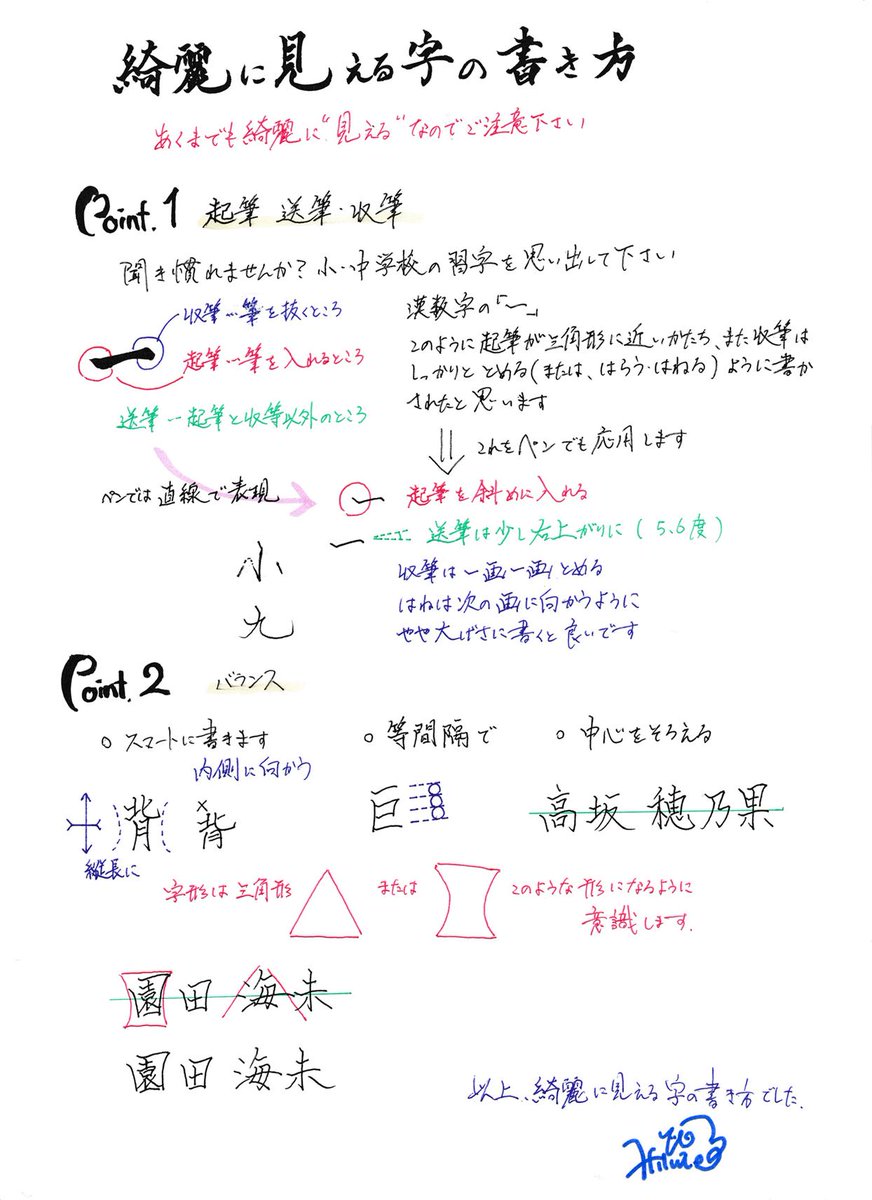 綺麗に見える字の書き方
あくまでも綺麗に"見える"なのでご注意下さい
Point.1 起筆 送筆・収筆
聞き慣れませんか？小・中学校の習字を思い出して下さい
収筆…筆を抜くところ
起筆…筆を入れるところ
送筆…起筆と収筆以外のところ
漢数字の「一」
このように起筆が三角形に近いかたち、また収筆は
しっかりととめる(または、はらう・はねる)ように書か
されたと思います
これをペンでも応用します
ペンでは直線で表現
起筆を斜めに入れる
送筆は少し右上がりに(5、6度)
収筆は一画一画とめる
はねは次の画に向かうように
やや大げさに書くと良いです
小
九
Point.2 バランス
○ スマートに書きます
内側に向かう
背 × 背
縦長に
○ 等間隔で
巨
○ 中心をそろえる
高坂 穂乃果
字形は三角形 または このような形になるように
意識します.
園田 海未
園田 海未
以上、綺麗に見える字の書き方でした.